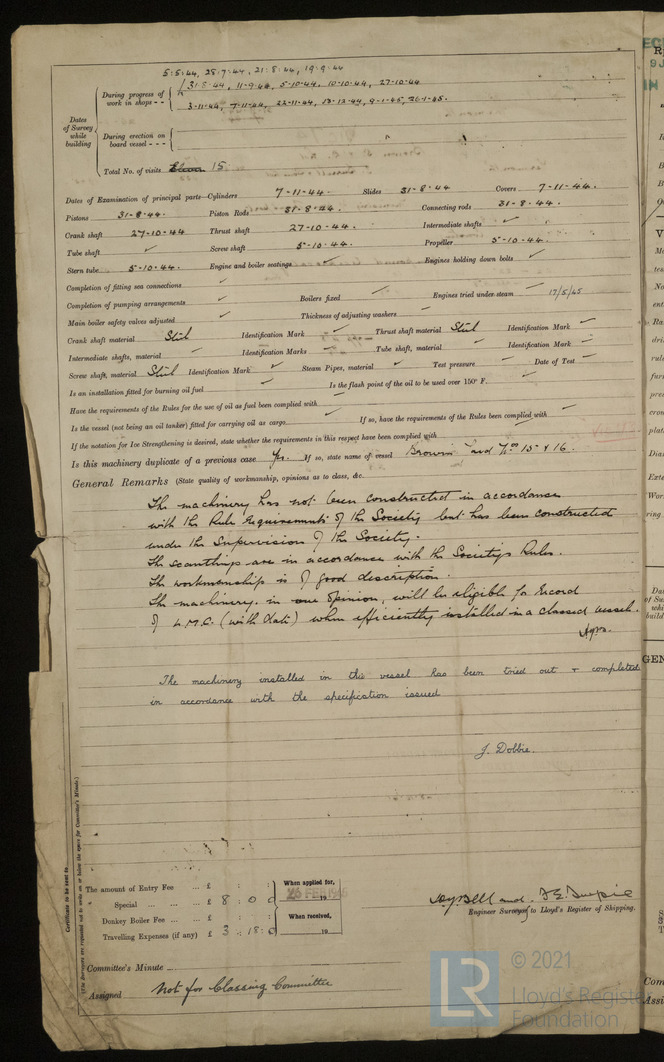 5·5·44, 28·7·44, 21·8·44, 19·9·44
During progress of work in shops - - 31·8·44, 11-9-44, 5-10-44, 10-10-44, 27-10-44
3-11-44, 7-11-44, 22-11-44, 13-12-44, 9-1-45, 26-1-45.
Dates of Survey while building
During erection on board vessel - - -
Total No. of visits Eleven 15
Dates of Examination of principal parts—Cylinders 7-11-44. Slides 31-8-44 Covers 7-11-44.
Pistons 31-8-44. Piston Rods 31-8-44. Connecting rods 31-8-44.
Crank shaft 27-10-44 Thrust shaft 27-10-44. Intermediate shafts ✓
Tube shaft ✓ Screw shaft 5-10-44. Propeller 5-10-44.
Stern tube 5-10-44. Engine and boiler seatings ✓ Engines holding down bolts ✓
Completion of fitting sea connections ✓
Completion of pumping arrangements ✓ Boilers fixed ✓ Engines tried under steam 17/5/45
Main boiler safety valves adjusted ✓ Thickness of adjusting washers ✓
Crank shaft material Steel Identification Mark ✓ Thrust shaft material Steel Identification Mark ✓
Intermediate shafts, material ✓ Identification Marks ✓ Tube shaft, material ✓ Identification Mark ✓
Screw shaft, material Steel Identification Mark ✓ Steam Pipes, material ✓ Test pressure ✓ Date of Test ✓
Is an installation fitted for burning oil fuel ✓ Is the flash point of the oil to be used over 150° F. ✓
Have the requirements of the Rules for the use of oil as fuel been complied with ✓
Is the vessel (not being an oil tanker) fitted for carrying oil as cargo ✓ If so, have the requirements of the Rules been complied with ✓
If the notation for Ice Strengthening is desired, state whether the requirements in this respect have been complied with ✓
Is this machinery duplicate of a previous case Yes. If so, state name of vessel Nos 15 & 16.
General Remarks (State quality of workmanship, opinions as to class, &c.
The machinery has not been constructed in accordance
with the Rule Requirements of the Society but has been constructed
under the Supervision of the Society.
The scantlings are in accordance with the Society's Rules.
The workmanship is of good description.
The machinery, in our opinion, will be eligible for Record
of L.M.C. (with date) when efficiently installed in a classed vessel.
The machinery installed in this vessel has been tried out & completed
in accordance with the specification issued
J. Dobbie.
Certificate to be sent to
(The Surveyors are requested not to write on or below the space for Committee's Minute.)
The amount of Entry Fee ... £ : :
Special ... ... £ 8 : 0 : 0
Donkey Boiler Fee ... ... £ : :
Travelling Expenses (if any) £ 3 : 18 : 0
When applied for,
26 FEB 1945
19
When received,
19
Engineer Surveyors to Lloyd's Register of Shipping.
Committee's Minute
Assigned Not for Classing Committee
LR
© 2021
Lloyd's Register
Foundation